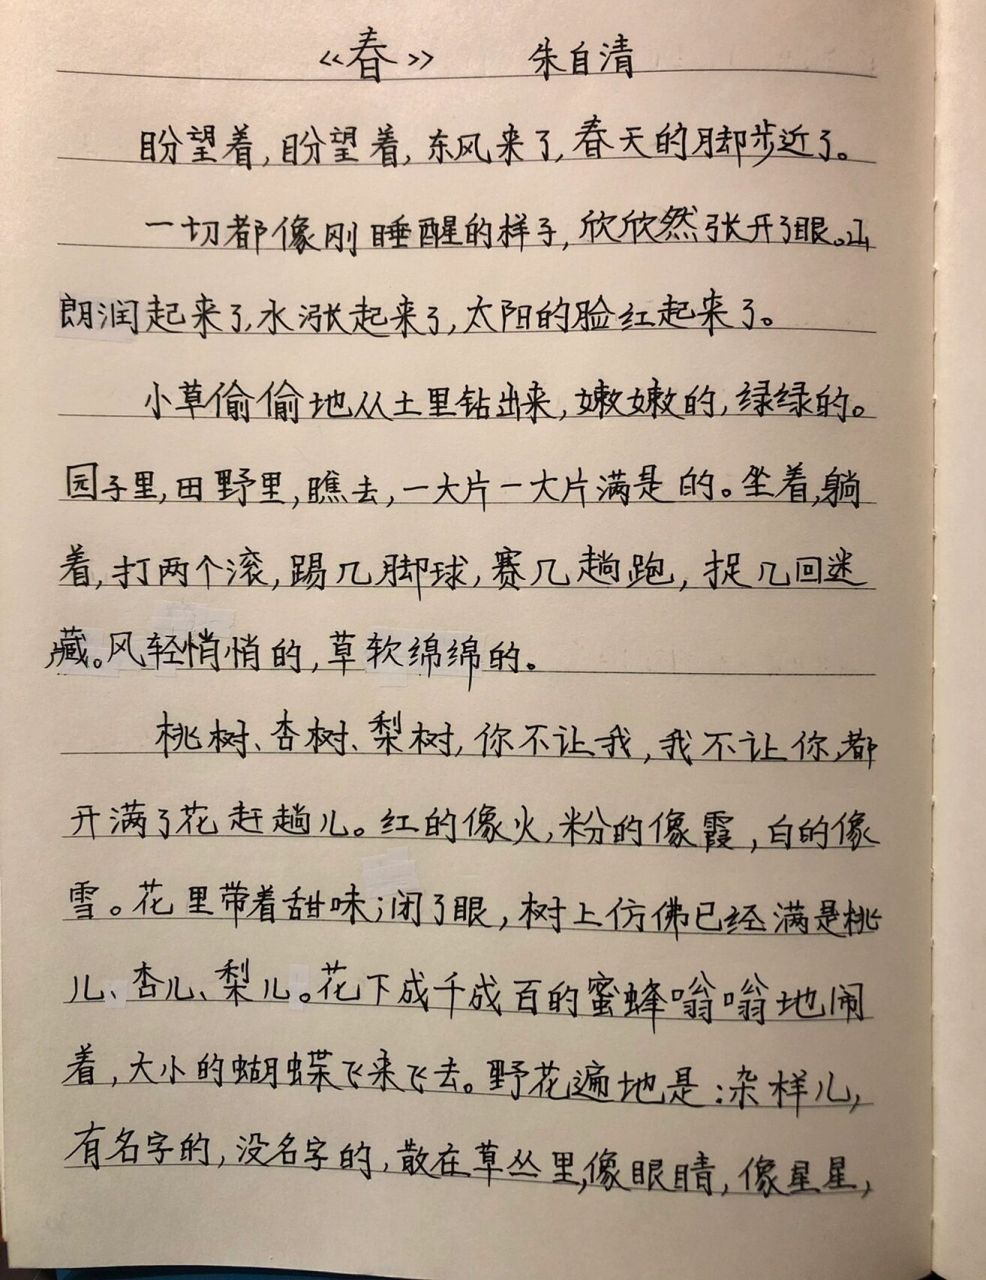 《春》 朱自清
盼望着,盼望着,东风来了,春天的脚步近了。
一切都像刚睡醒的样子,欣欣然张开了眼。山
朗润起来了,水涨起来了,太阳的脸红起来了。
小草偷偷地从土里钻出来,嫩嫩的,绿绿的。
园子里,田野里,瞧去,一大片一大片满是的。坐着,躺
着,打两个滚,踢几脚球,赛几趟跑,捉几回迷
藏。风轻悄悄的,草软绵绵的。
桃树、杏树、梨树,你不让我,我不让你,都
开满了花赶趟儿。红的像火,粉的像霞,白的像
雪。花里带着甜味;闭了眼,树上仿佛已经满是桃
儿、杏儿、梨儿。花下成千成百的蜜蜂嗡嗡地闹
着,大小的蝴蝶飞来飞去。野花遍地是:杂样儿,
有名字的,没名字的,散在草丛里,像眼睛,像星星,